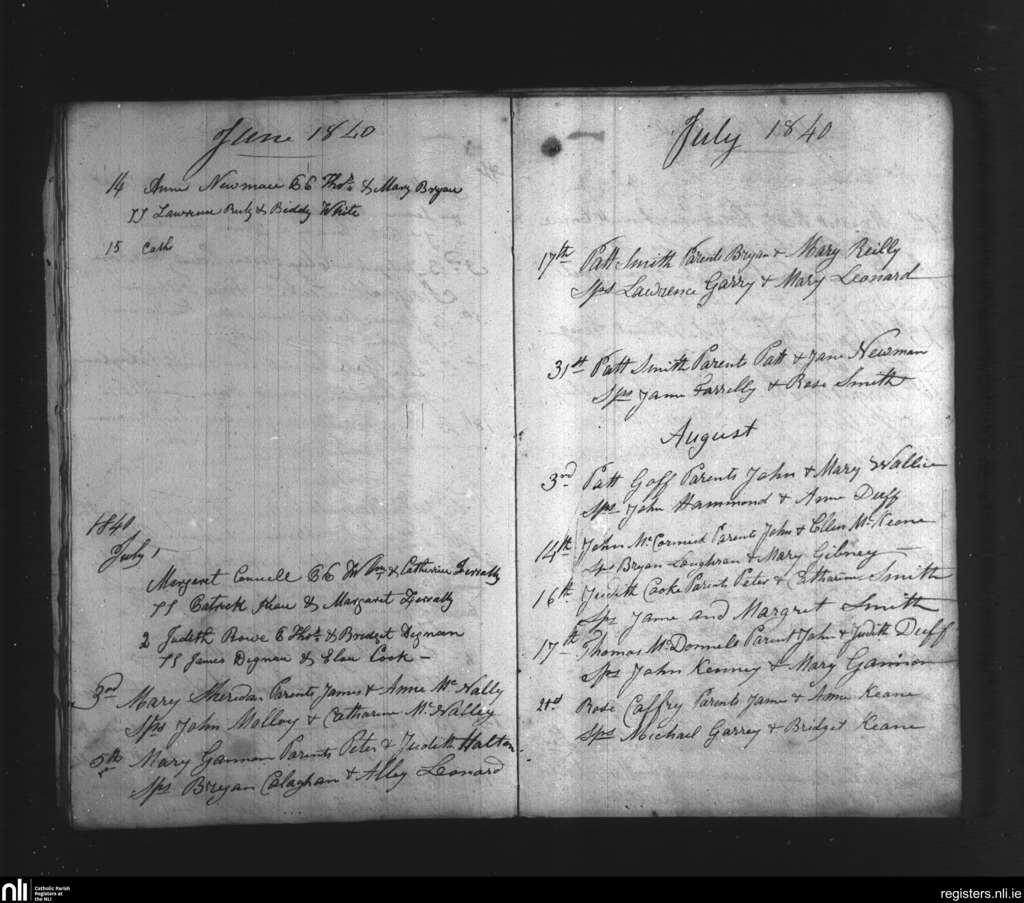 June 1840
14 Anne Newman Thos & Mary Bryan
Lawrence & Biddy White
15 Cath
1840
July 1
Margaret Connell & Catherine
Patrick & Margaret
2 Judith Rowe Thos & Bridget Dignam
James Dignam & Cook
3rd Mary Sheridan Parents James & Anne McNally
Sps John Molloy & Catharine McNalley
5th Mary Gannon Parents Peter & Judith Halton
Sps Bryan Calaghan & Alley Leonard
July 1840
17th Patt Smith Parents Bryan & Mary Reilly
Sps Lawrence Garry & Mary Leonard
31st Patt Smith Parents Patt & Jane Newman
Sps James Farrelly & Rose Smith
August
3rd Patt Goff Parents John & Mary
Sps John Hammond & Anne Duff
14th John McCormick Parents John & Ellen McKeone
Sps Bryan Loughran & Mary Gibney
16th Judith Cooke Parents Peter & Catharine Smith
Sps Jame and Margret Smith
17th Thomas McDonnele Parent John & Judith Duff
Sps John Kenney & Mary Gannon
21st Rose Caffry Parents Jame & Anne Keane
Sps Michael Garrey & Bridget Keane
nli
Catholic Parish
Registers at
the NLI
registers.nli.ie